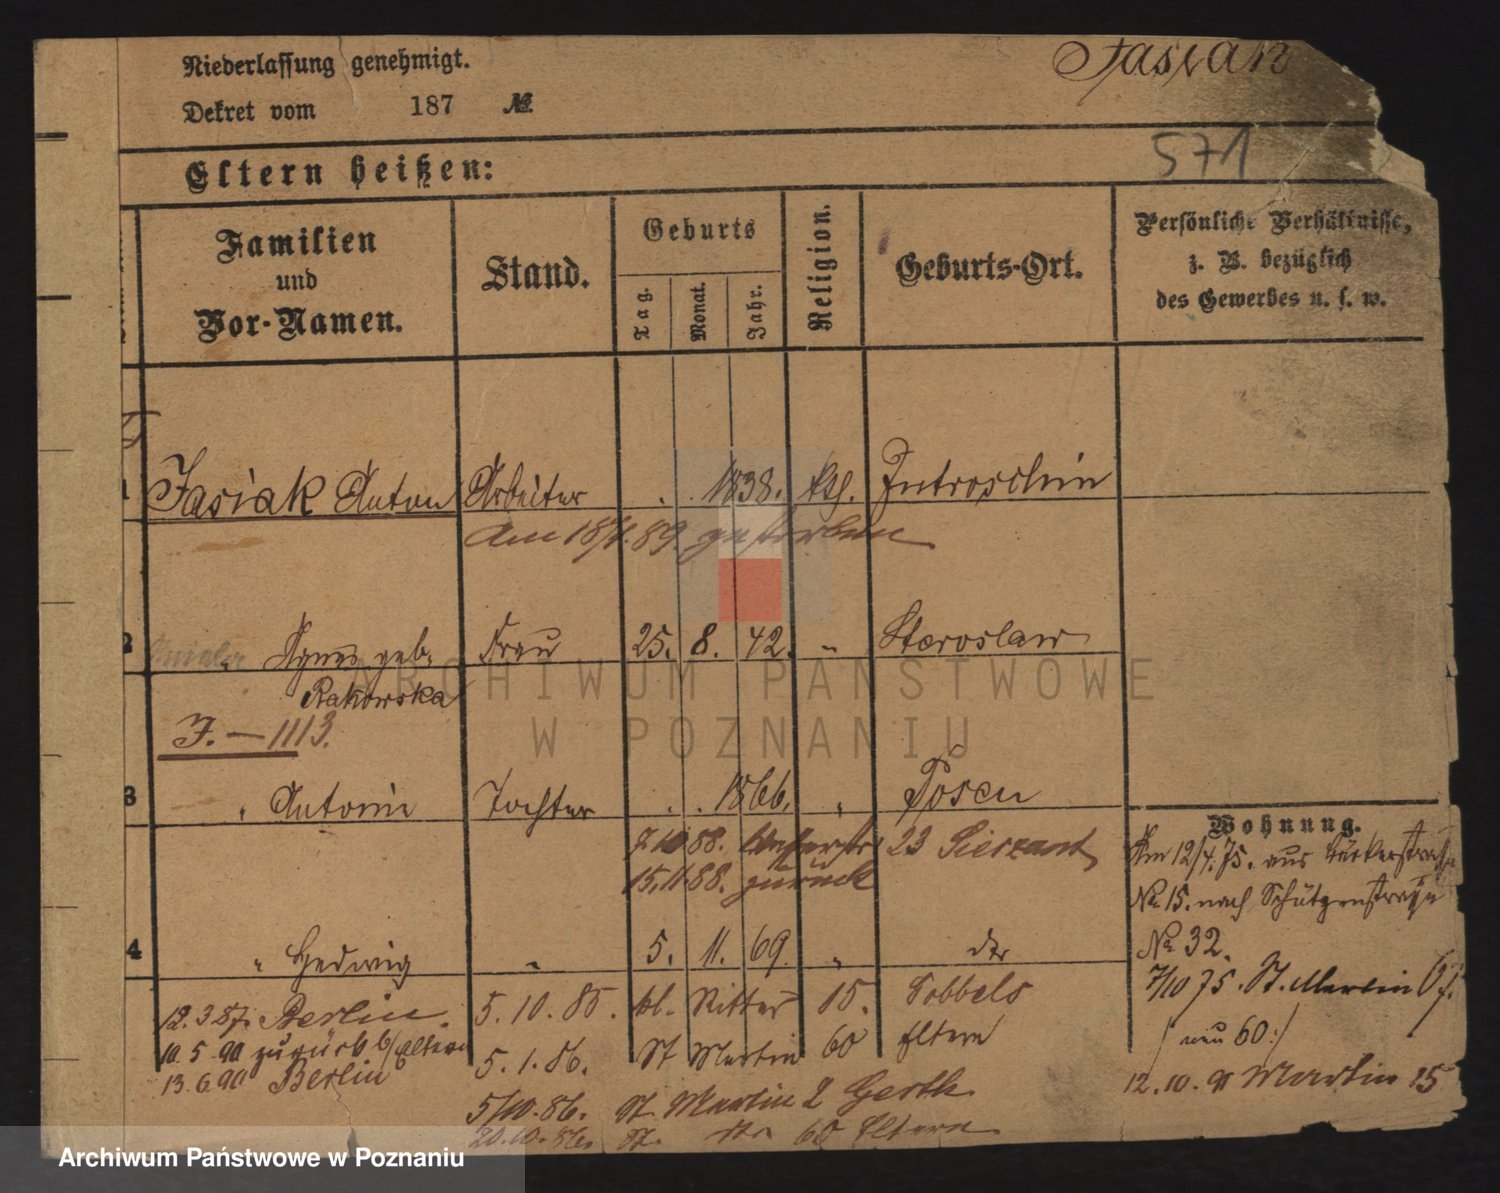 Niederlassung genehmigt.
Dekret vom 187 №
Jasiak
571
Eltern heißen:
Familien und Vor-Namen.
Stand.
Geburts
Tag.
Monat.
Jahr.
Religion.
Geburts-Ort.
Persönliche Verhältnisse,
z. B. bezüglich
des Gewerbes u. s. w.
1 Jasiak Anton Arbeiter . . 1838. kth. Jutroschin
am 18/1.89 gestorben
2 " Agnes geb. Frau 25. 8. 42. " Staroslaw
Rakowska
J. — 1113.
3 " Antonie Tochter . . 1866. " Posen
7.10 88. 23
15.11.88. zurück
4 " Hedwig " 5. 11. 69. " dto
Wohnung.
Am 12/4.75. aus Bäckerstraße
No 15. nach Schützenstraße
No 32.
7/10 75. St. Martin 67.
/ neu 60:/
12.10.91 Martin 15
12.3.87. Berlin.
10.5.90 zurück b/Eltern
13.6.90 Berlin
5.10.85. kl. Ritter 15.
5.1.86. St Martin 60 Eltern
5/10.86. St. Martin 2
20.10.86. St. dto 60 Eltern
ARCHIWUM PAŃSTWOWE
W POZNANIU
Archiwum Państwowe w Poznaniu